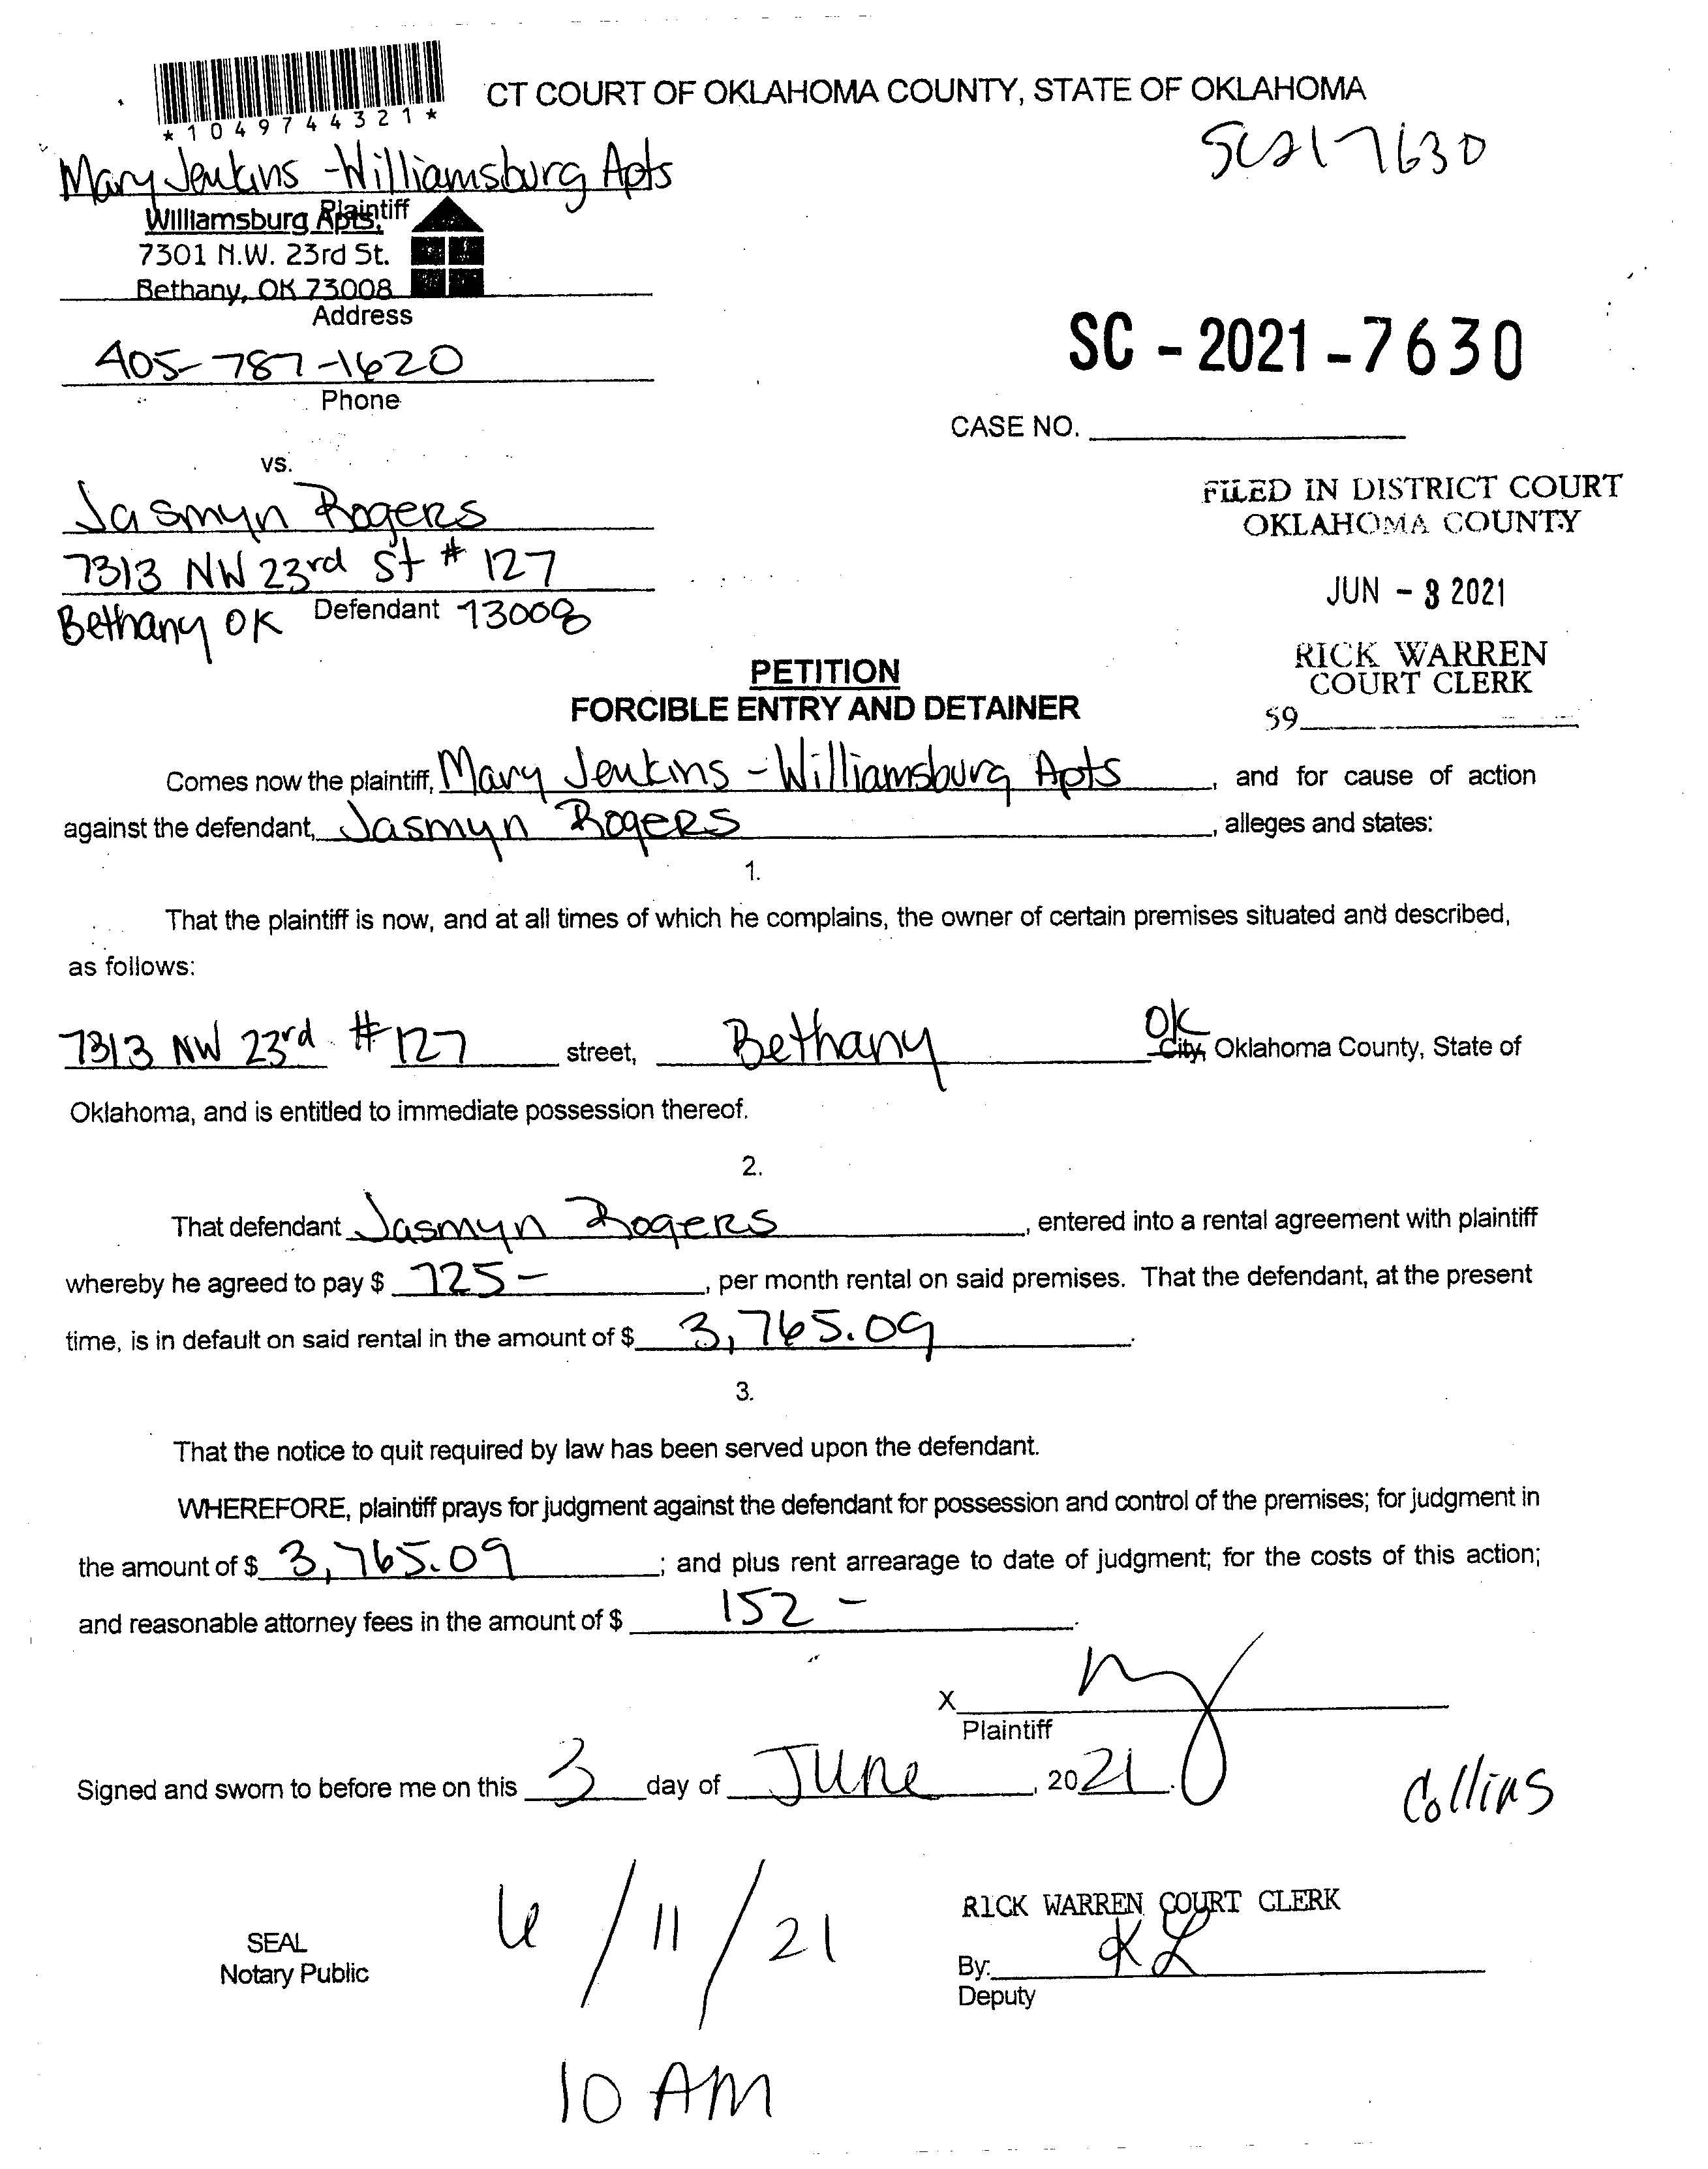 CT COURT OF OKLAHOMA COUNTY, STATE OF OKLAHOMA
*1049744321*
SC217630
Mary Jenkins - Williamsburg Apts
Plaintiff
Williamsburg Apts.
7301 N.W. 23rd St.
Bethany, OK 73008
Address
405-787-1620
Phone
SC - 2021 - 7630
CASE NO.
vs.
Jasmyn Rogers
7313 NW 23rd St # 127
Defendant
Bethany OK 73008
FILED IN DISTRICT COURT
OKLAHOMA COUNTY
JUN - 3 2021
RICK WARREN
COURT CLERK
59
PETITION
FORCIBLE ENTRY AND DETAINER
Comes now the plaintiff, Mary Jenkins - Williamsburg Apts, and for cause of action
against the defendant, Jasmyn Rogers, alleges and states:
1.
That the plaintiff is now, and at all times of which he complains, the owner of certain premises situated and described,
as follows:
7313 NW 23rd #127 street, Bethany OK City, Oklahoma County, State of
Oklahoma, and is entitled to immediate possession thereof.
2.
That defendant Jasmyn Rogers, entered into a rental agreement with plaintiff
whereby he agreed to pay $ 725-, per month rental on said premises. That the defendant, at the present
time, is in default on said rental in the amount of $ 3,765.09.
3.
That the notice to quit required by law has been served upon the defendant.
WHEREFORE, plaintiff prays for judgment against the defendant for possession and control of the premises; for judgment in
the amount of $ 3,765.09; and plus rent arrearage to date of judgment; for the costs of this action;
and reasonable attorney fees in the amount of $ 152-.
X
Plaintiff
Signed and sworn to before me on this 3 day of June, 2021.
Collins
6/11/21
RICK WARREN COURT CLERK
SEAL
Notary Public
By: KL
Deputy
10 AM